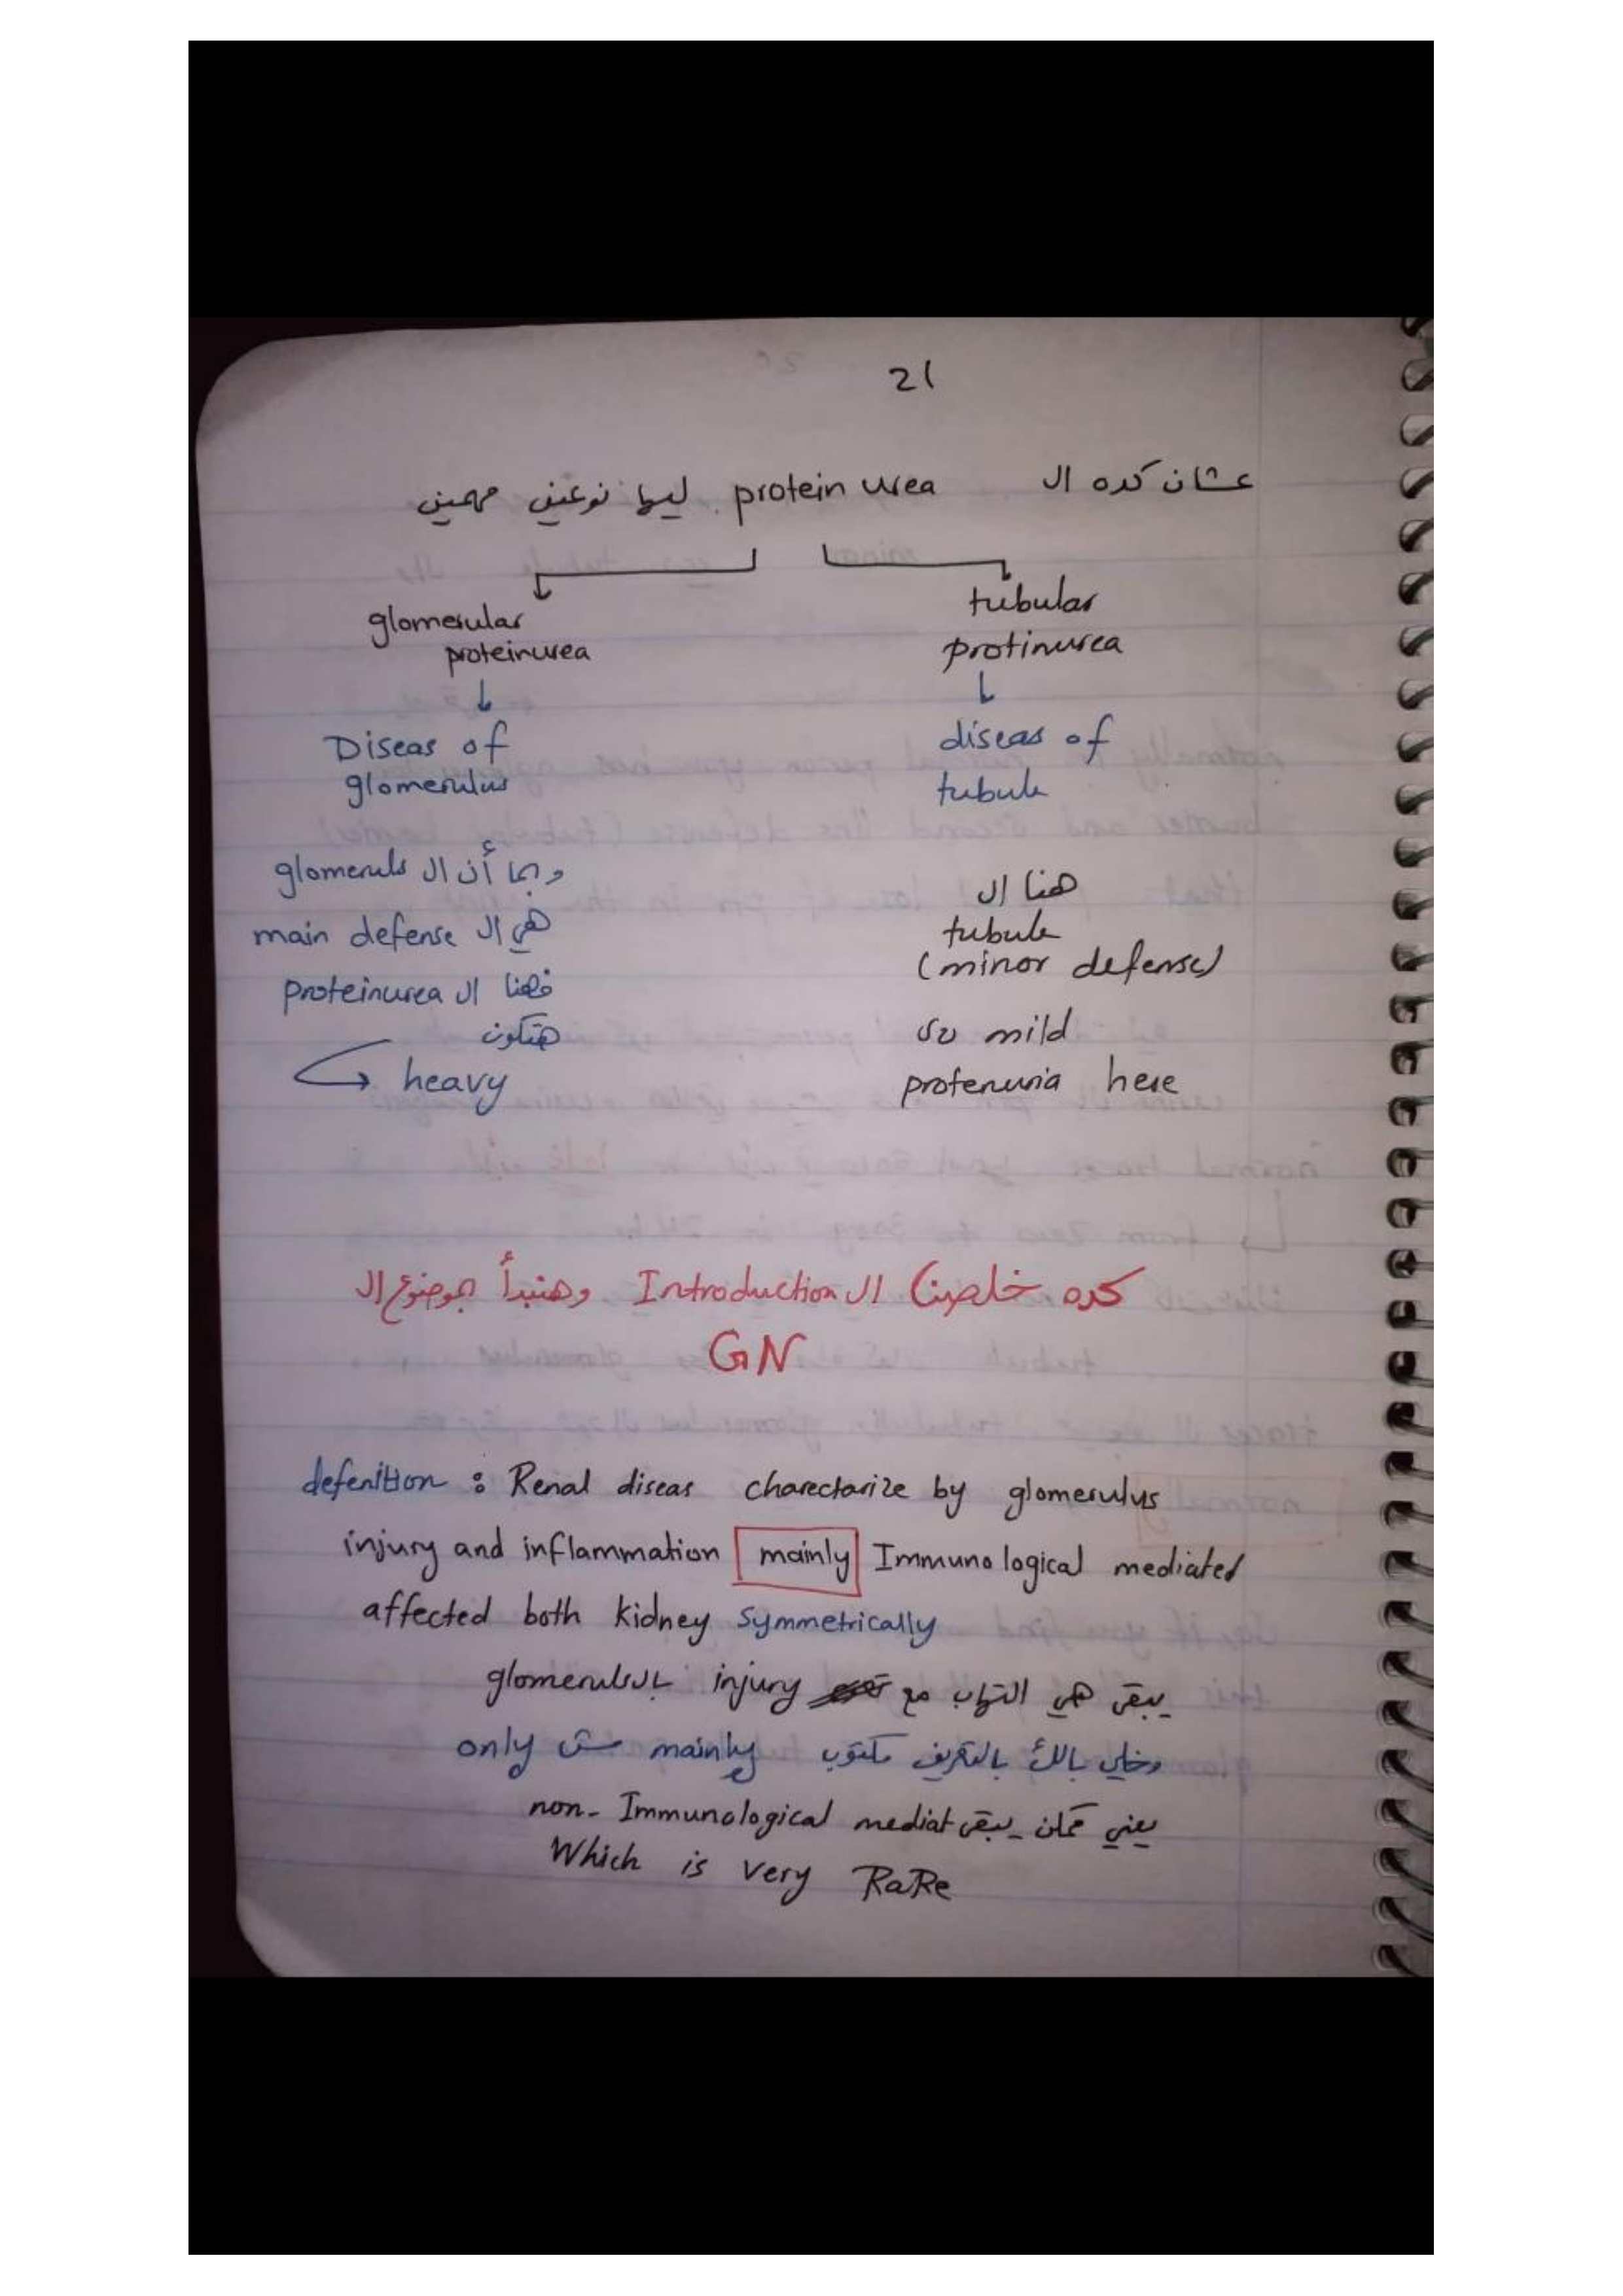 21
عشان كده ال protein urea ليها نوعين مهمين
glomerular
proteinurea
Diseas of
glomerulus
وبما أن ال glomeruls
هي ال main defense
فهنا ال proteinurea
هتكون
heavy
tubular
protinurea
diseas of
tubule
هنا ال
tubule
(minor defense)
so mild
protenuria here
كده خلصنا ال Introduction وهنبدأ بموضوع ال
GN
defenition : Renal diseas charectarize by glomerulus
injury and inflammation mainly Immunological mediated
affected both kidney symmetrically
يبقى هي التهاب مع injury بال glomeruls
وخلي بالك بالتعريف مكتوب mainly مش only
يعني ممكن يبقى non-Immunological mediat
Which is very RaRe